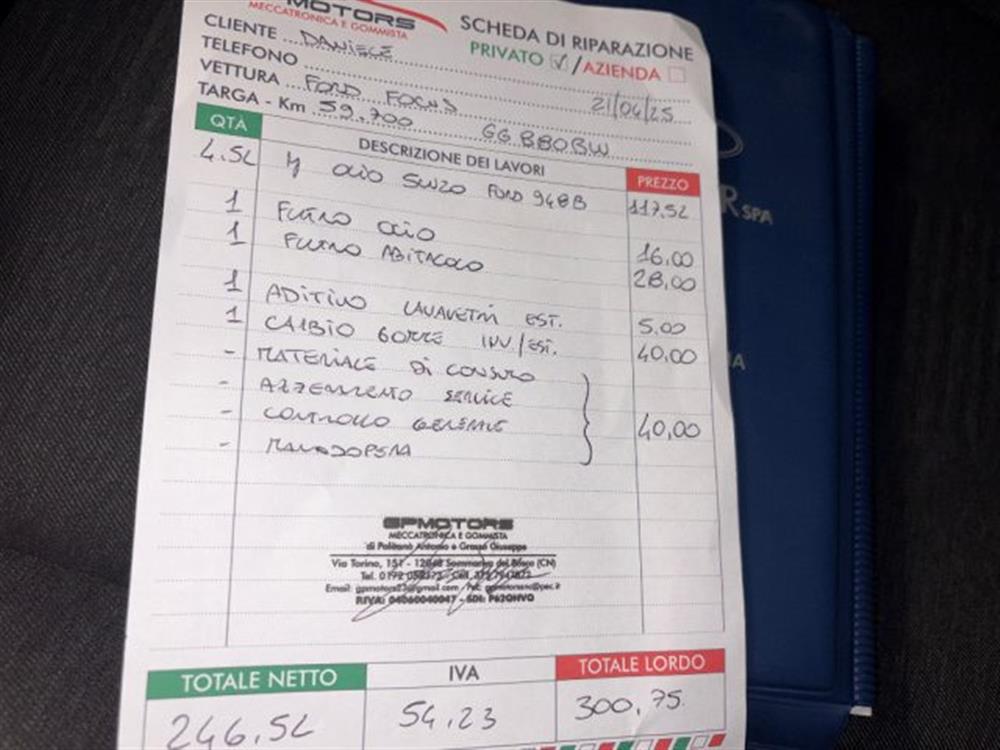 MOTORS
MECCATRONICA E GOMMISTA
SCHEDA DI RIPARAZIONE
PRIVATO ☑ / AZIENDA ☐
CLIENTE DANIELE
TELEFONO 21/04/25
VETTURA FORD FOCUS
TARGA - Km 59.700 GG 880BW
QTÀ DESCRIZIONE DEI LAVORI PREZZO
4.5L OLIO FORD 948B 117,52
1 FILTRO OLIO 16,00
1 FILTRO ABITACOLO 28,00
1 ADITIVO LAVAVETRI EST. 5,00
1 CAMBIO GOMME INV/EST. 40,00
- MATERIALE DI CONSUMO
- AZZERAMENTO SERVICE
- CONTROLLO GENERALE 40,00
- MANODOPERA
GPMOTORS
MECCATRONICA E GOMMISTA
di Politanò Antonio e Grasso Giuseppe
Via Torino, 151 - 12048 Sommariva del Bosco (CN)
Tel. 0172
Email:
P.IVA: 04060040047 - SDI:
TOTALE NETTO IVA TOTALE LORDO
246,52 54,23 300,75
SPA